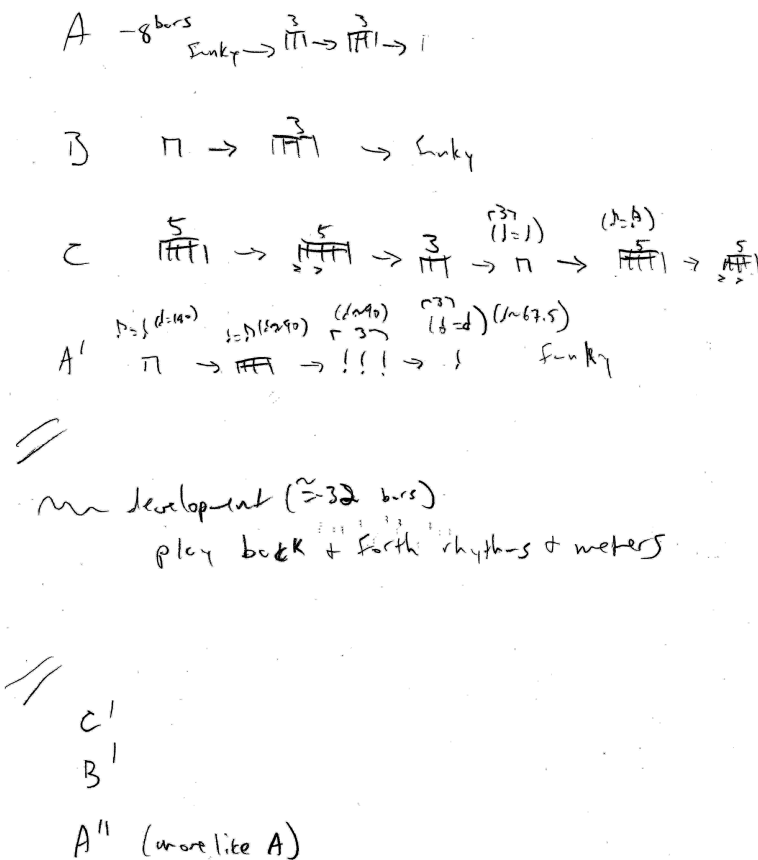 A -8 bars
funky → 3 → 3 →
B → 3 → funky
5 5 3 (♩=♩) 5 5
C → → → → →
(♩=140) (♩~90) (♩~90) (♩~67.5)
A' → → ! ! ! → funky
development (≈32 bars)
play back + forth rhythms + meters
C'
B'
A" (more like A)